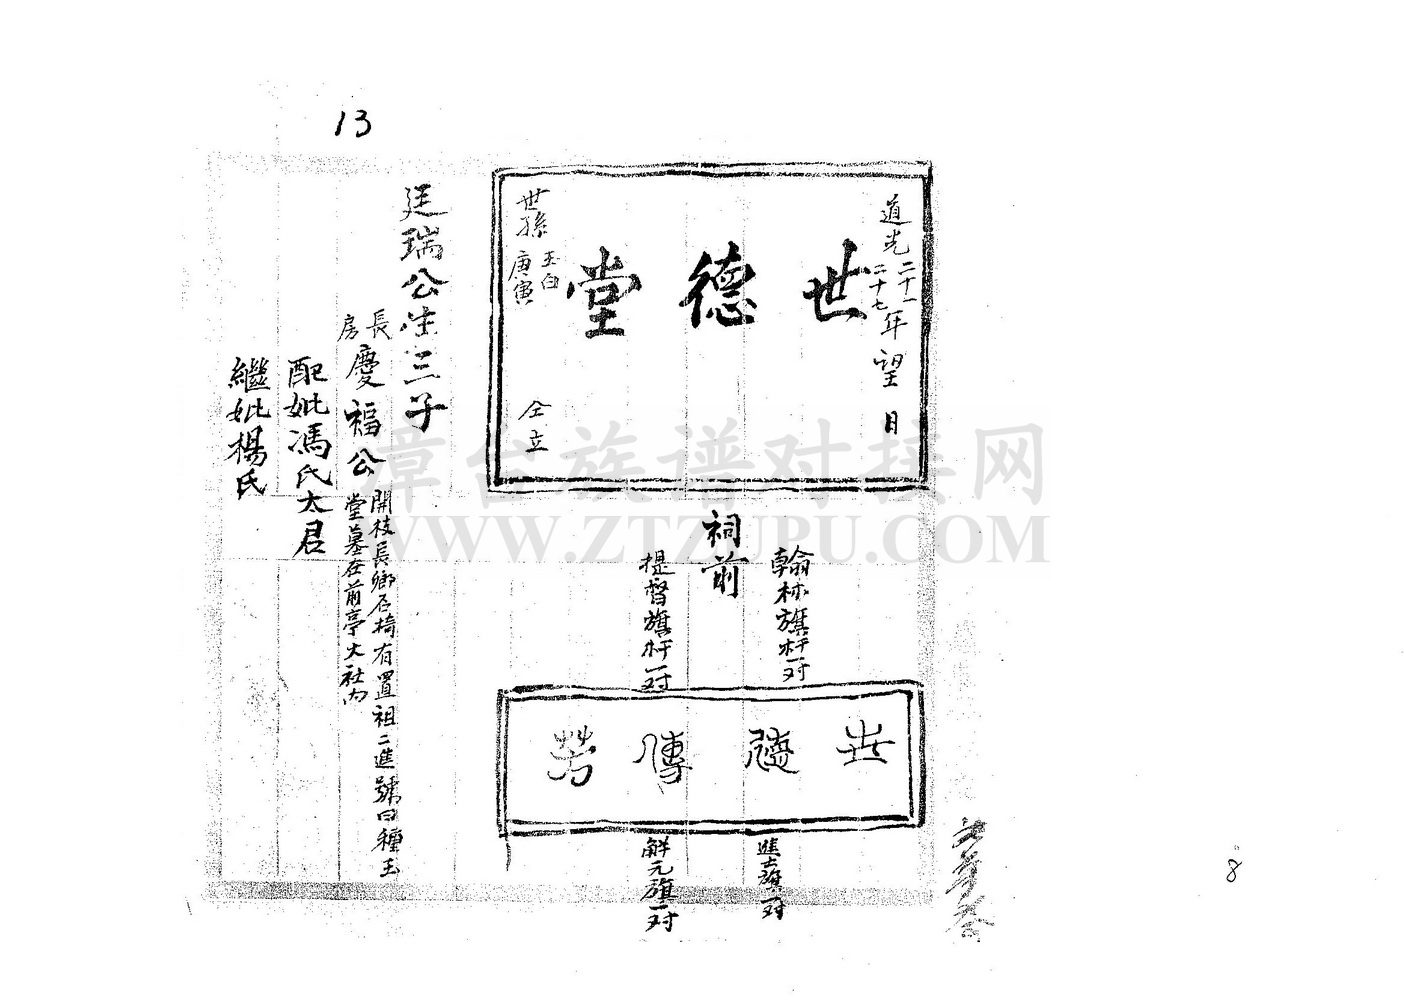 13
道光二十一
二十七年望日
世德堂
世孫
玉白
庚寅
仝立
祠前
翰林旗杆一对
提督旗杆一对
世德傳芳
進士旗一对
解元旗一对
廷瑞公生三子
長房
慶福公
開枝長鄉石椅有置祖二進號曰種玉
堂墓在前亭大社內
配妣馮氏太君
繼妣楊氏
漳台族谱对接网
WWW.ZTZUPU.COM
8